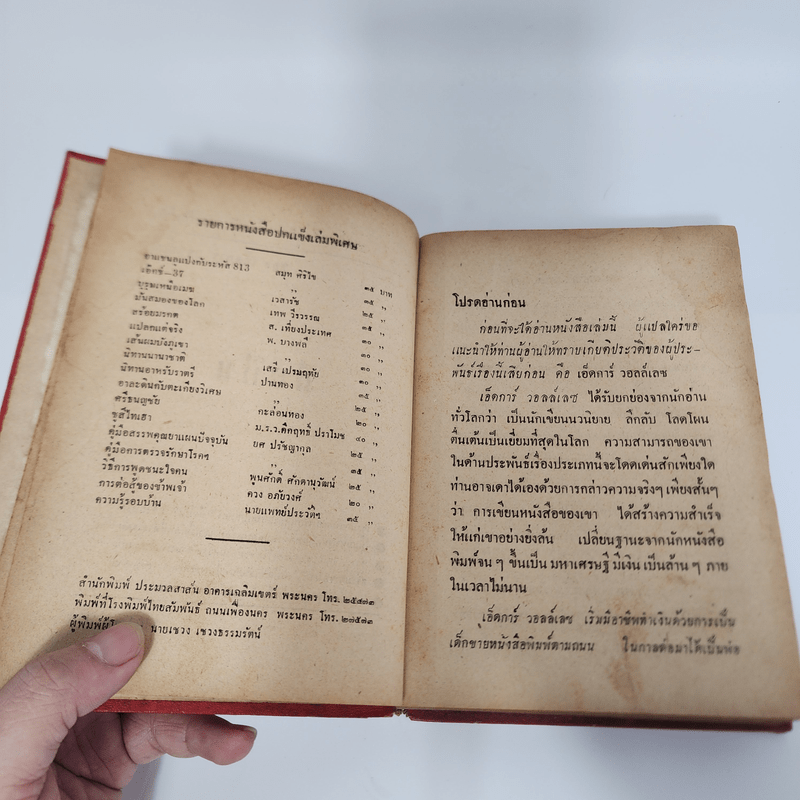 รายการหนังสือปกแข็งเล่มพิเศษ
อาแซนลูแปงกับระหัส 813 สมุท ศิริไข ๓๕ บาท
วอิทช์—37 ,, ๓๕ ,,
บุรุษเหนือเมฆ เวสารัช ๓๕ ,,
มันสมองของโลก เทพ วีรวรรณ ๒๐ ,,
สร้อยมรคต ส. เที่ยงประเทศ ๓๕ ,,
แปลกแต่จริง พ. บางพลี ๓๐ ,,
เส้นผมบังภูเขา ,, ๓๐ ,,
นิทานนานาชาติ เสรี เปรมฤทัย ๓๐ ,,
นิทานอาหรับราตรี ปานทอง ๓๕ ,,
อาละดินกับตะเกียงวิเศษ ,, ๒๕ ,,
ศรีธนญชัย กะล่อนทอง ๒๐ ,,
ซูสีไทเฮา ม.ร.ว.คึกฤทธิ์ ปราโมช ๔๐ ,,
คู่มือสรรพคุณยาแผนปัจจุบัน ยศ ปรัชญากุล ๒๕ ,,
คู่มือการตรวจรักษาโรคๆ ,, ๓๕ ,,
วิธีการพูดชนะใจคน พูนศักดิ์ ศักดานุวัฒน์ ๒๐ ,,
การต่อสู้ของข้าพเจ้า ควง อภัยวงศ์ ๒๐ ,,
ความรู้รอบบ้าน นายแพทย์ประวัติฯ ๓๕ ,,
สำนักพิมพ์ ประมวลสาส์น อาคารเฉลิมเขตร์ พระนคร โทร. ๒๕๔๗๓
พิมพ์ที่โรงพิมพ์ไทยสัมพันธ์ ถนนเฟื่องนคร พระนคร โทร. ๒๗๕๗๓
ผู้พิมพ์ผู้โ นายเชวง เชวงธรรมรัตน์
โปรดอ่านก่อน
ก่อนที่จะได้อ่านหนังสือเล่มนี้ ผู้แปลใคร่ขอ
แนะนำให้ท่านผู้อ่านให้ทราบเกียติประวัติของผู้ประ-
พันธ์เรื่องนี้เสียก่อน คือ เอ็ดการ์ วอลล์เลซ
เอ็ดการ์ วอลล์เลซ ได้รับยกย่องจากนักอ่าน
ทั่วโลกว่า เป็นนักเขียนนวนิยาย ลึกลับ โลดโผน
ตื่นเต้นเป็นเยี่ยมที่สุดในโลก ความสามารถของเขา
ในด้านประพันธ์เรื่องประเภทนี้จะโดดเด่นสักเพียงใด
ท่านอาจเดาได้เองด้วยการกล่าวความจริงๆ เพียงสั้นๆ
ว่า การเขียนหนังสือของเขา ได้สร้างความสำเร็จ
ให้แก่เขาอย่างยิ่งล้น เปลี่ยนฐานะจากนักหนังสือ
พิมพ์จน ๆ ขึ้นเป็น มหาเศรษฐี มีเงิน เป็นล้าน ๆ ภาย
ในเวลาไม่นาน
เอ็ดการ์ วอลล์เลซ เริ่มมีอาชีพทำเงินด้วยการเป็น
เด็กชายหนังสือพิมพ์ตามถนน ในกาลต่อมาได้เป็นพ่อ